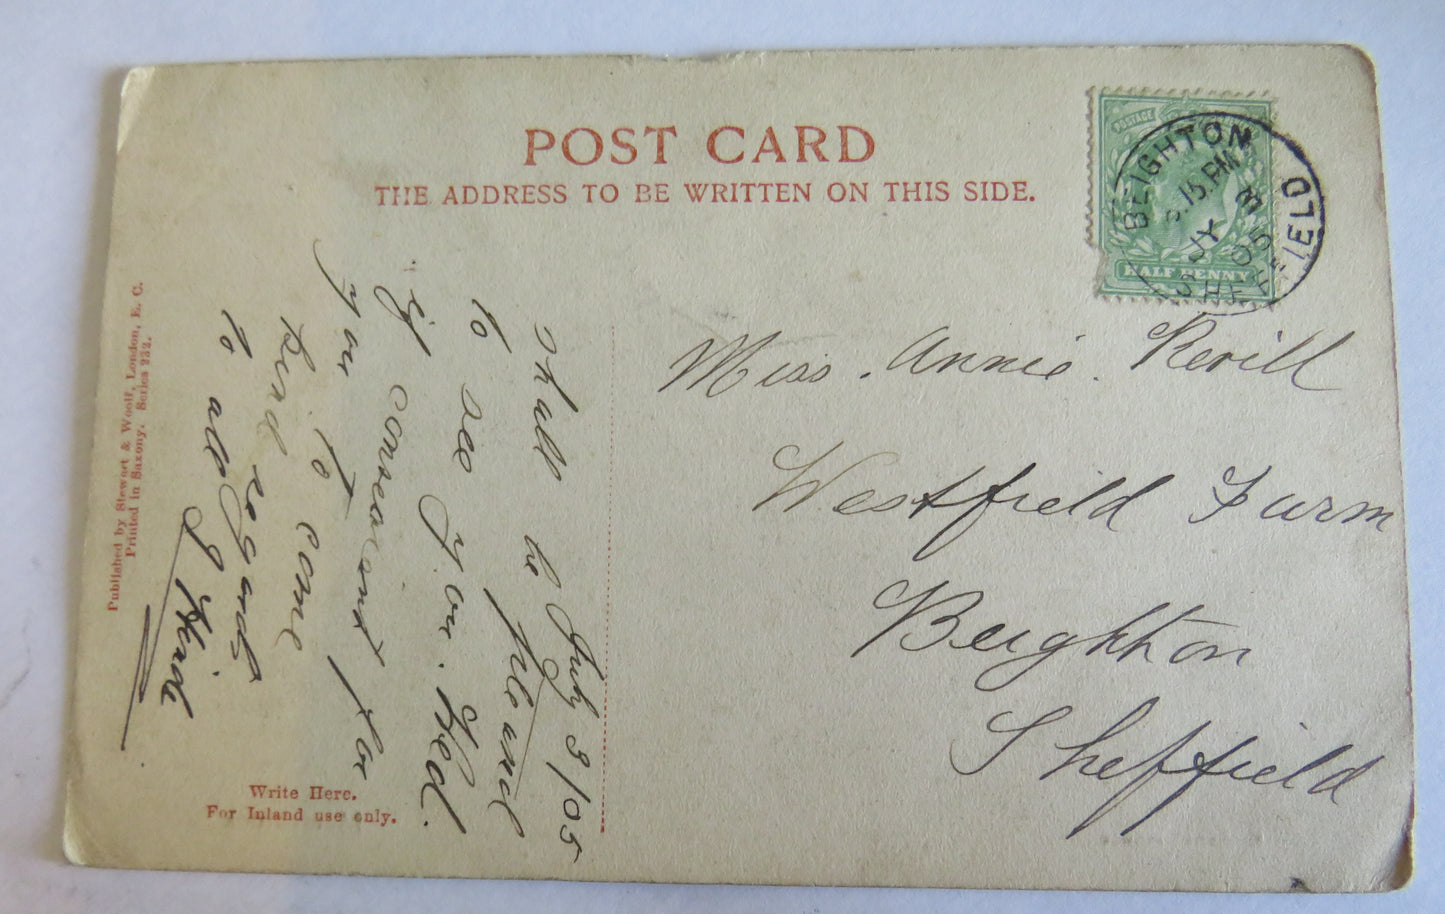 POST CARD
THE ADDRESS TO BE WRITTEN ON THIS SIDE.
POSTAGE
HALF PENNY
BEIGHTON
15.PM
JY 3
05
SHEFFIELD
Miss. Annie. Revill
Westfield Farm
Beighton
Sheffield
July 3/05
Shall be pleased
to see you. Wed.
if convenient for
you to come
kind regards
to all
L Hind
Write Here.
For Inland use only.
Published by Stewart & Woolf, London, E. C.
Printed in Saxony. Series 232.